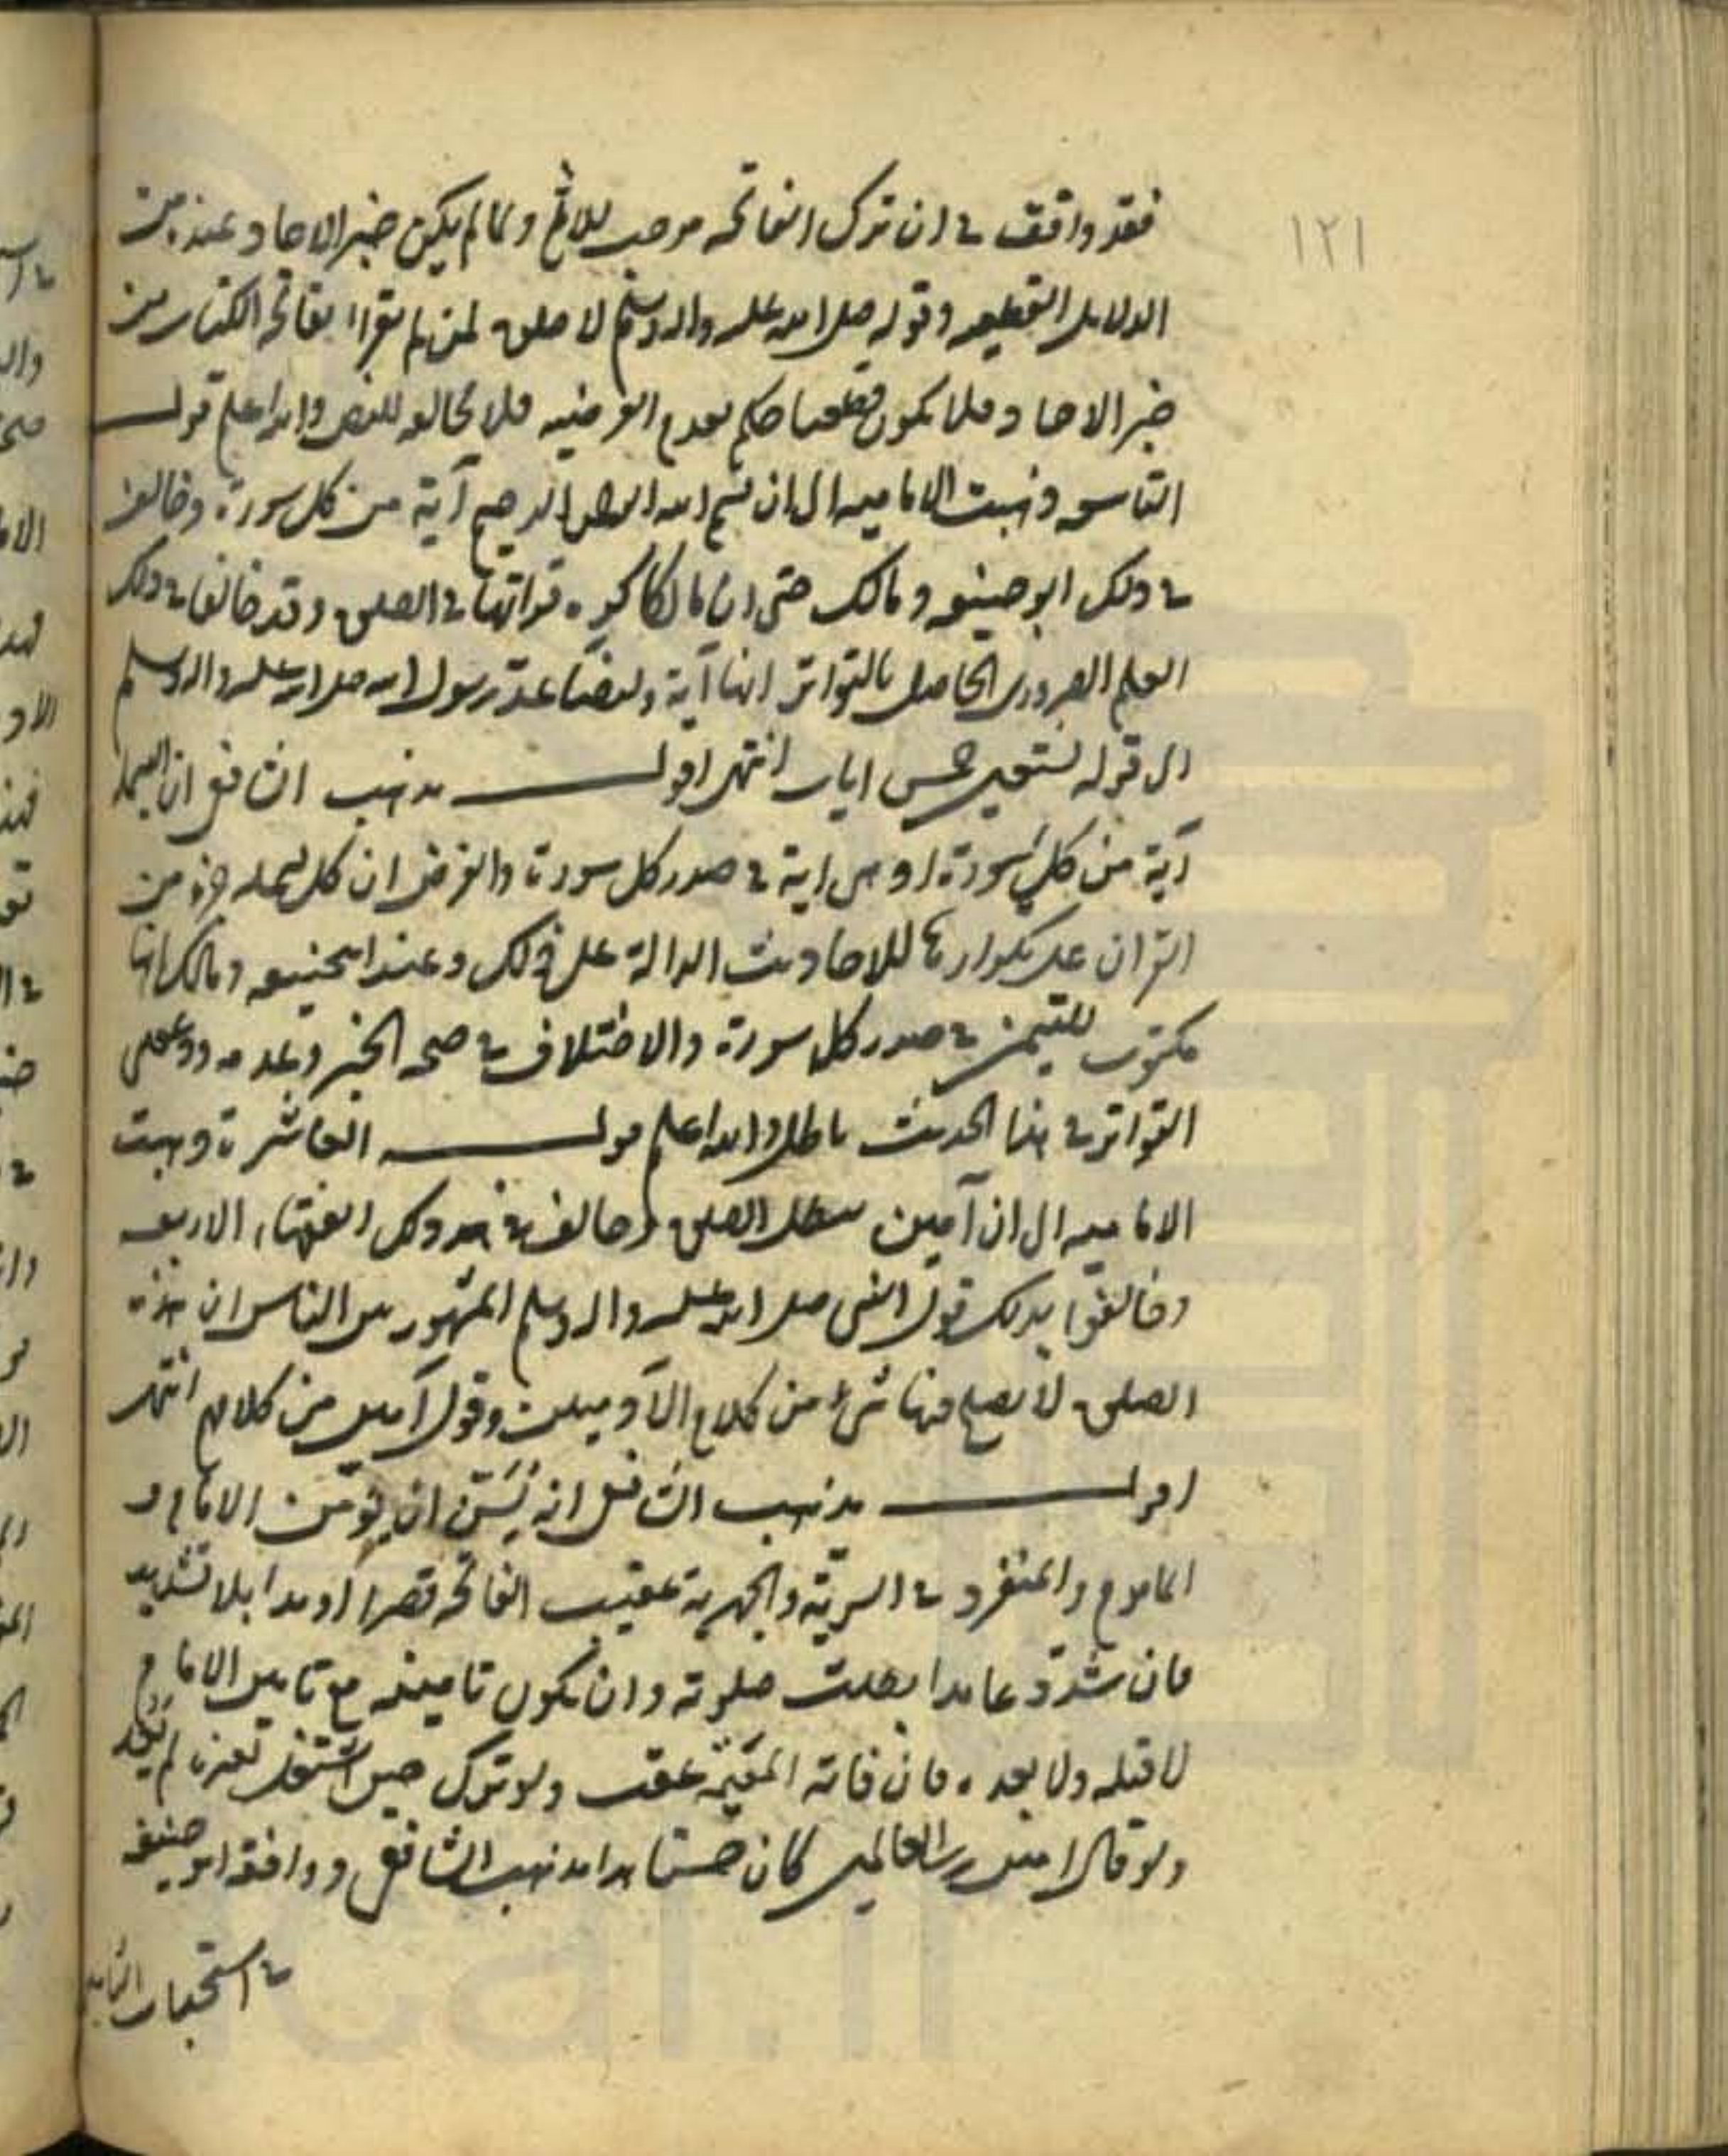 ١٢١
فقد وافق في ان ترك الفاتحه موجب للاثم ولما لم يكن خبر الاحاد عنده من
الدلايل القطعيه وقوله صلى الله عليه واله وسلم لا صلوة لمن لم يقرا بفاتحه الكتاب من
خبر الاحاد فلا يكون قطعيا حكم بعدم الفرضيه فلا مخالفه للنص والله اعلم قولـــه
التاسعه ذهبت الاماميه الى ان بسم الله الرحمن الرحيم آية من كل سورة وخالف
في ذلك ابو حنيفه ومالك حتى ان مالكا كره قراتها في الصلوة وقد خالفا في ذلك
العلم الضروري الحاصل بالتواتر انها آية وايضا عد رسول الله صلى الله عليه واله وسلم
الى قوله نستعين خمس ايات انتهى اقولـــــ مذهب الشافعي ان البسملة
آية من كل سورة او هي اية في صدر كل سورة والغرض ان كل بسمله جزء من
القران على تكرارها للاحاديث الدالة على ذلك وعند ابي حنيفه ومالك انها
مكتوب للتيمن في صدر كل سورة والاختلاف في صحه الخبر وعدمه ودعوى
التواتر في هذا الحديث باطل والله اعلم قولـــــه العاشرة ذهبت
الاماميه الى ان آمين تبطل الصلوة وخالف في ذلك الفقهاء الاربعه
وخالفوا بذلك قول النبي صلى الله عليه واله وسلم المشهور بين الناس ان هذه
الصلوة لا يصلح فيها شيء من كلام الآدميين وقول آمين من كلامهم انتهى
اقولـــــ مذهب الشافعي انه يسن ان يؤمن الامام و
الماموم والمنفرد في السرية والجهرية عقيب الفاتحه قصرا او مدا بلا تشديد
فان شدد عامدا بطلت صلوته وان يكون تامينه مع تامين الامام
لا قبله ولا بعده فان فاته المعية عقب ولو ترك حين اشتغل بغيره لم يعد
ولو قال امين رب العالمين كان حسنا هذا مذهب الشافعي ووافقه ابو حنيفه
في استحباب التامين